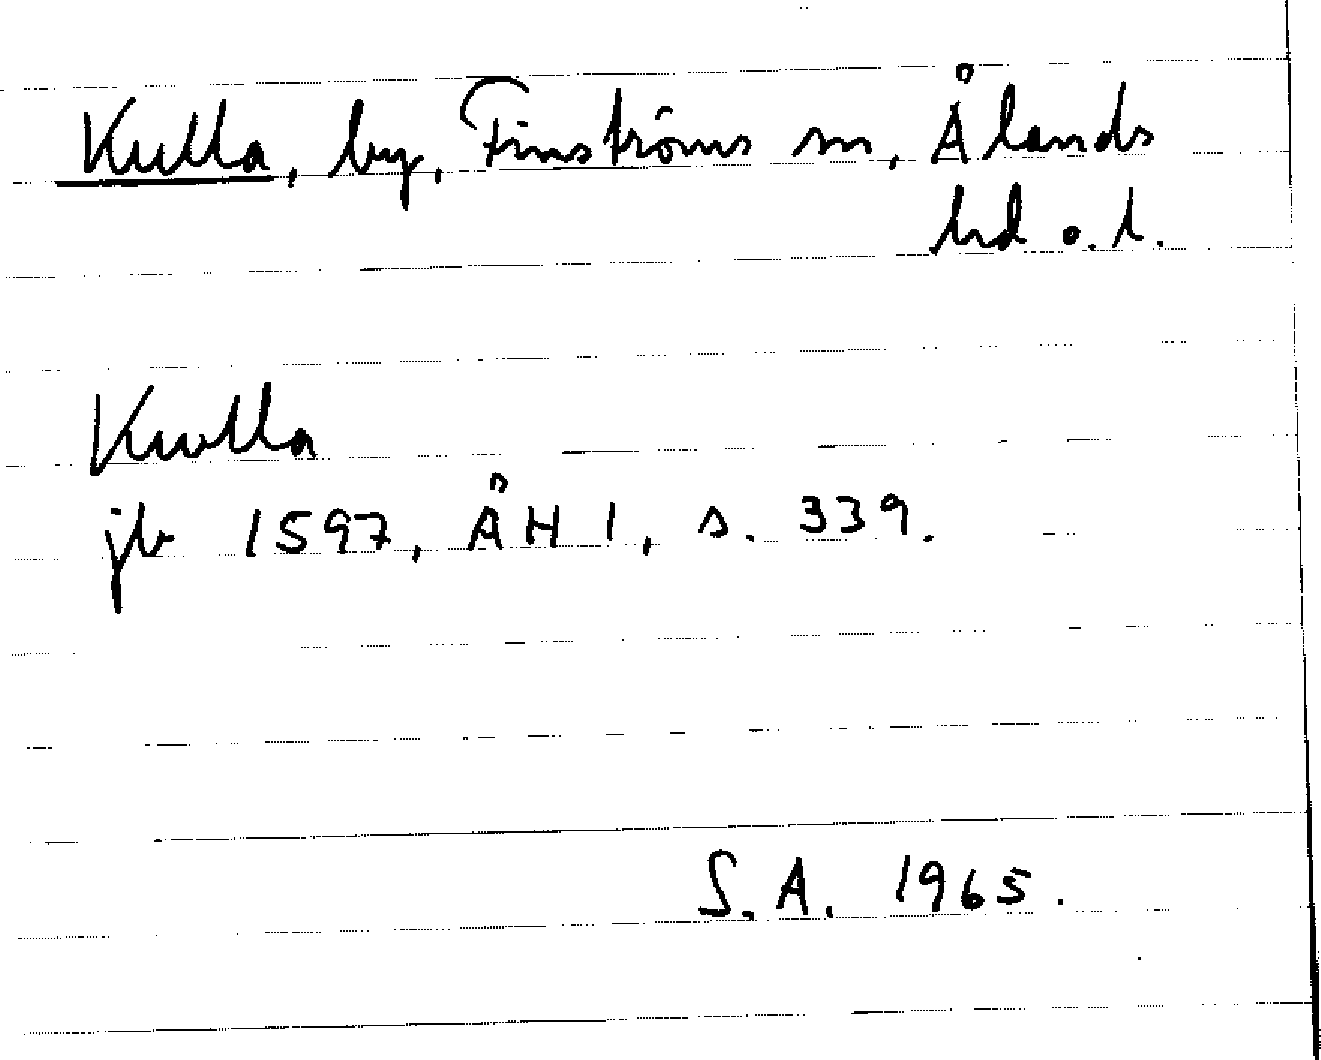 Kulla, by, Finströms sn, Ålands
hd o. l.
Kwlla
jb 1597, ÅH I, s. 339.
S.A. 1965.